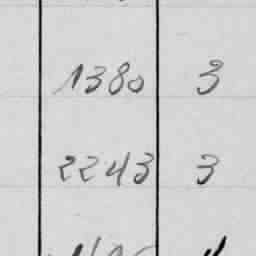 1380 3
2243 3